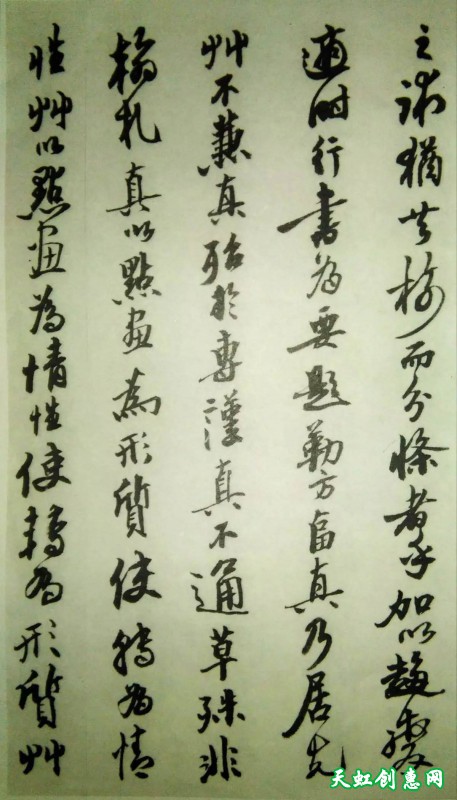 之派猶共樹而分條者乎加以趨變
適時行書為要題勒方畐真乃居先
艸不兼真殆於專謹真不通草殊非
翰札真以點畫為形質使轉為情
性艸以點畫為情性使轉為形質艸
天虹创惠网